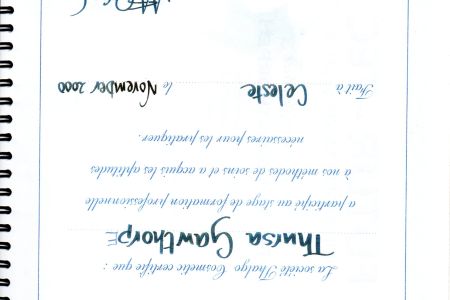 La société Thalgo Cosmetic certifie que :
Thursa Gawthorpe
a participé au stage de formation professionnelle
à nos méthodes de soins et a acquis les aptitudes
nécessaires pour les pratiquer.
Fait à Celeste le November 2000